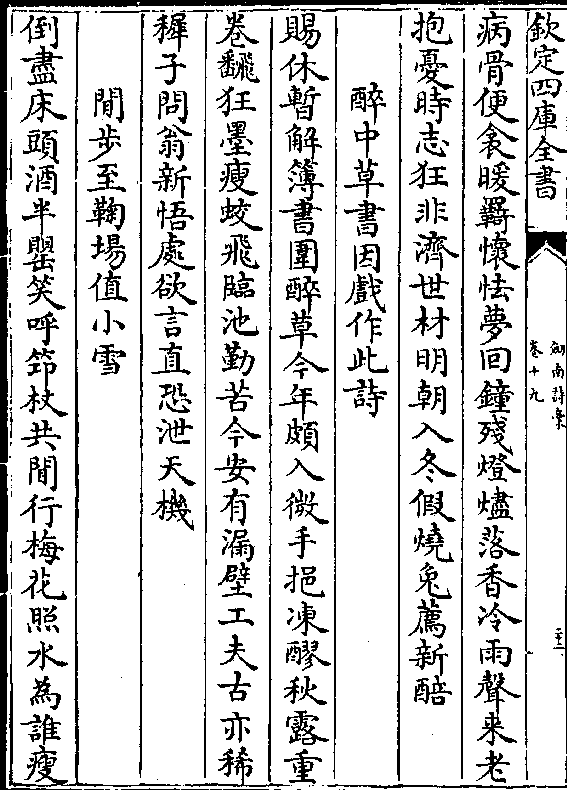 欽定四庫全書
劍南詩藁
卷十九
二十二
病骨便衾暖羇懷怯夢回鐘殘燈燼落香冷雨聲来老
抱憂時志狂非濟世材明朝入冬假燒兔薦新醅
醉中草書因戲作此詩
賜休暫解簿書圍醉草今年頗入微手挹凍醪秋露重
卷飜狂墨瘦蛟飛臨池勤苦今安有漏壁工夫古亦稀
穉子問翁新悟處欲言直恐泄天機
閒步至鞠場值小雪
倒盡床頭酒半罌笑呼笻杖共閒行梅花照水為誰瘦